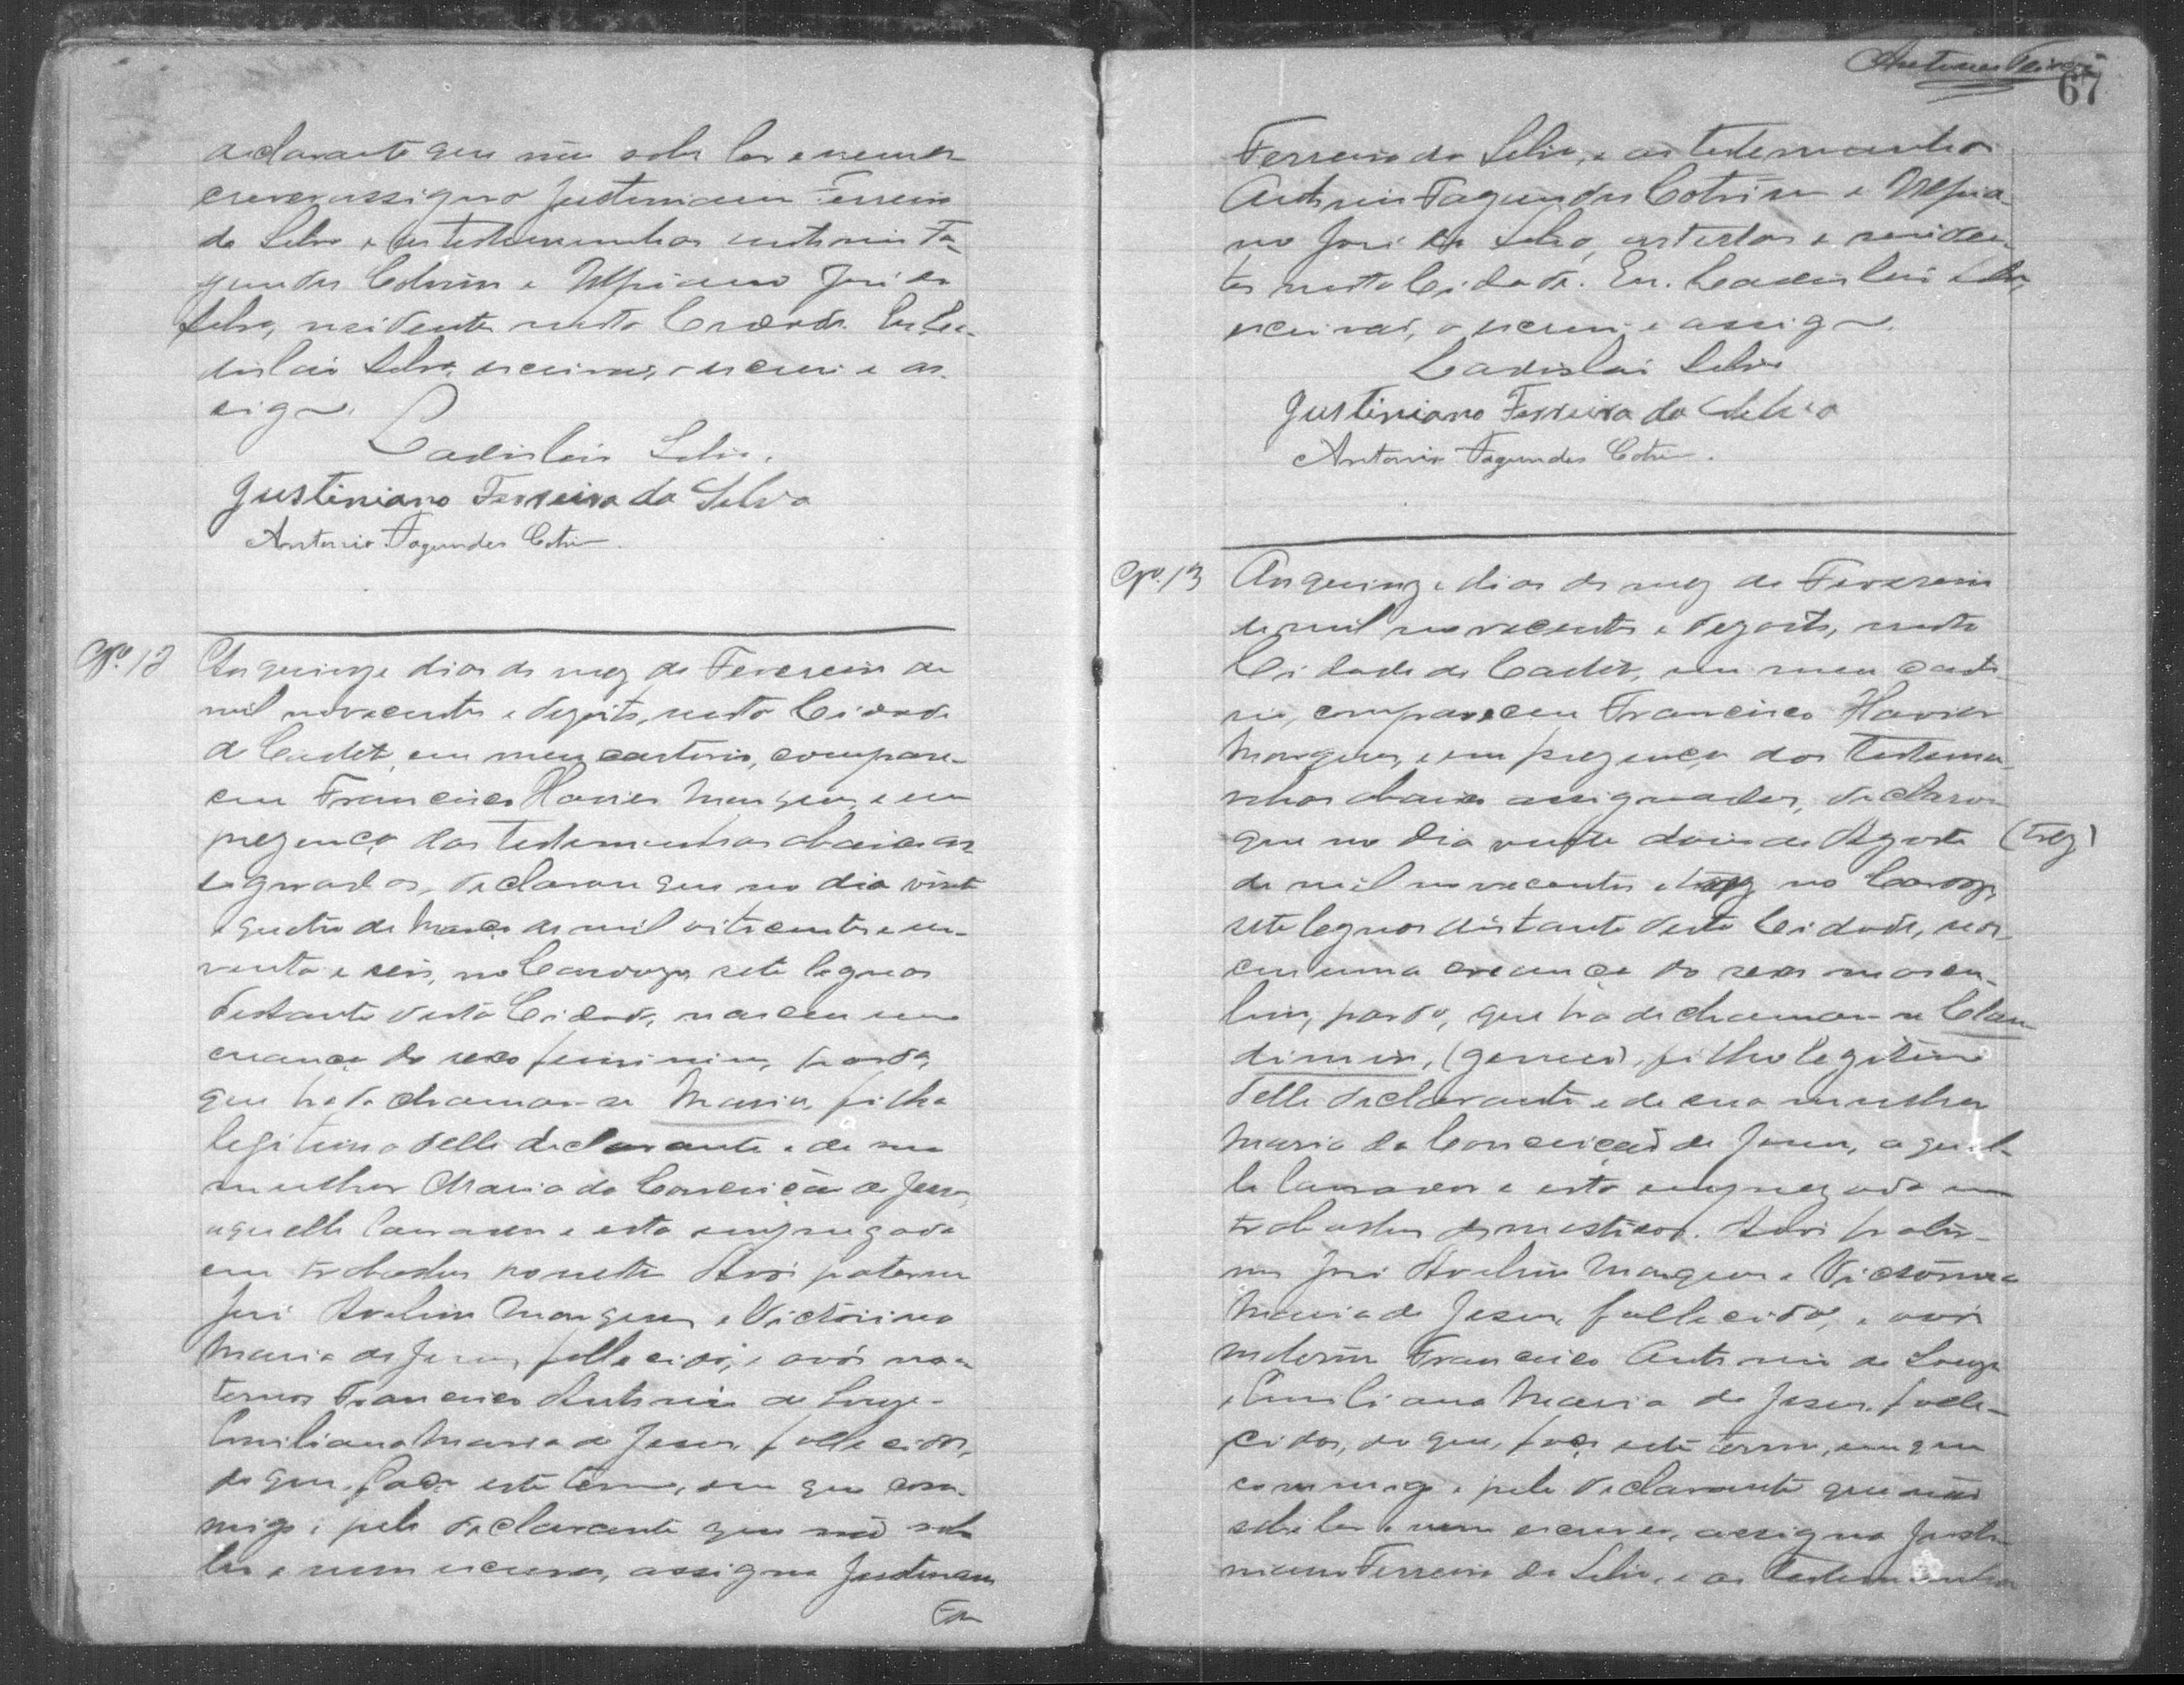 declarante que não sabe ler e nem es-
crever assigna Justiniano Ferreira
da Silva e as testemunhas Antonio Fa-
gundes Cotrim e Ulpiano José da
Silva, residentes nesta Cidade. Eu La-
disláo Silva, escrivão, o escrevi e as-
signo.
Ladisláo Silva.
Justiniano Ferreira da Silva
Antonio Fagundes Cotrim.
Nº. 12
Aos quinze dias do mez de Fevereiro de
mil novecentos e dezoito, nesta Cidade
de Caeteté, em meu cartorio, compare-
ceu Francisco Xavier Marques, e em
prezença das testemunhas abaixo as-
signadas, declarou que no dia vinte
e quatro de Março de mil oitocentos e no-
venta e seis, no sete leguas
distante desta Cidade, nasceu uma
creança do sexo feminino, parda,
que ha de chamar-se Maria, filha
legitima delle declarante e de sua
mulher Maria da Conceição de Jesus,
aquelle lavrador e esta empregada
em trabalhos Avós paternos
José Avelino Marques e Victorina
Maria de Jesus, fallecidos, e avós ma-
ternos Francisco Antonio de Souza e
Emiliana Maria de Jesus, fallecidos,
do que, faço este termo, em que com-
migo e pelo declarante que não sabe
ler e nem escrever, assigna Justiniano
Fer
67
Ferreira da Silva, e as testemunhas
Antonio Fagundes Cotrim e Ulpia-
no José da Silva, artistas e residen-
tes nesta Cidade. Eu, Ladisláo Silva,
escrivão, o escrevi e assigno.
Ladisláo Silva
Justiniano Ferreira da Silva
Antonio Fagundes Cotrim.
Nº. 13
Aos quinze dias do mez de Fevereiro
de mil novecentos e dezoito, nesta
Cidade de Caeteté, em meu carto-
rio, compareceu Francisco Xavier
Marques, e em prezença das testemu-
nhas abaixo assignadas, declarou
que no dia vinte dois de Agosto (trez)
de mil novecentos e trez no
sete leguas distante desta Cidade, nas-
ceu uma creança do sexo mascu-
lino, pardo, que ha de chamar-se Clau-
dimiro, (gemeo), filho legitimo
delle declarante e de sua mulher
Maria da Conceição de Jesus, aquel-
le lavrador e esta empregada em
trabalhos domesticos. Avós pater-
nos José Avelino Marques e Victorina
Maria de Jesus, fallecidos, e avós
maternos Francisco Antonio de Souza
e Emiliana Maria de Jesus, falle-
cidos, do que, faço este termo, em que
commigo e pelo declarante que não
sabe ler e nem escrever, assigna Justi-
niano Ferreira da Silva, e as testemunhas